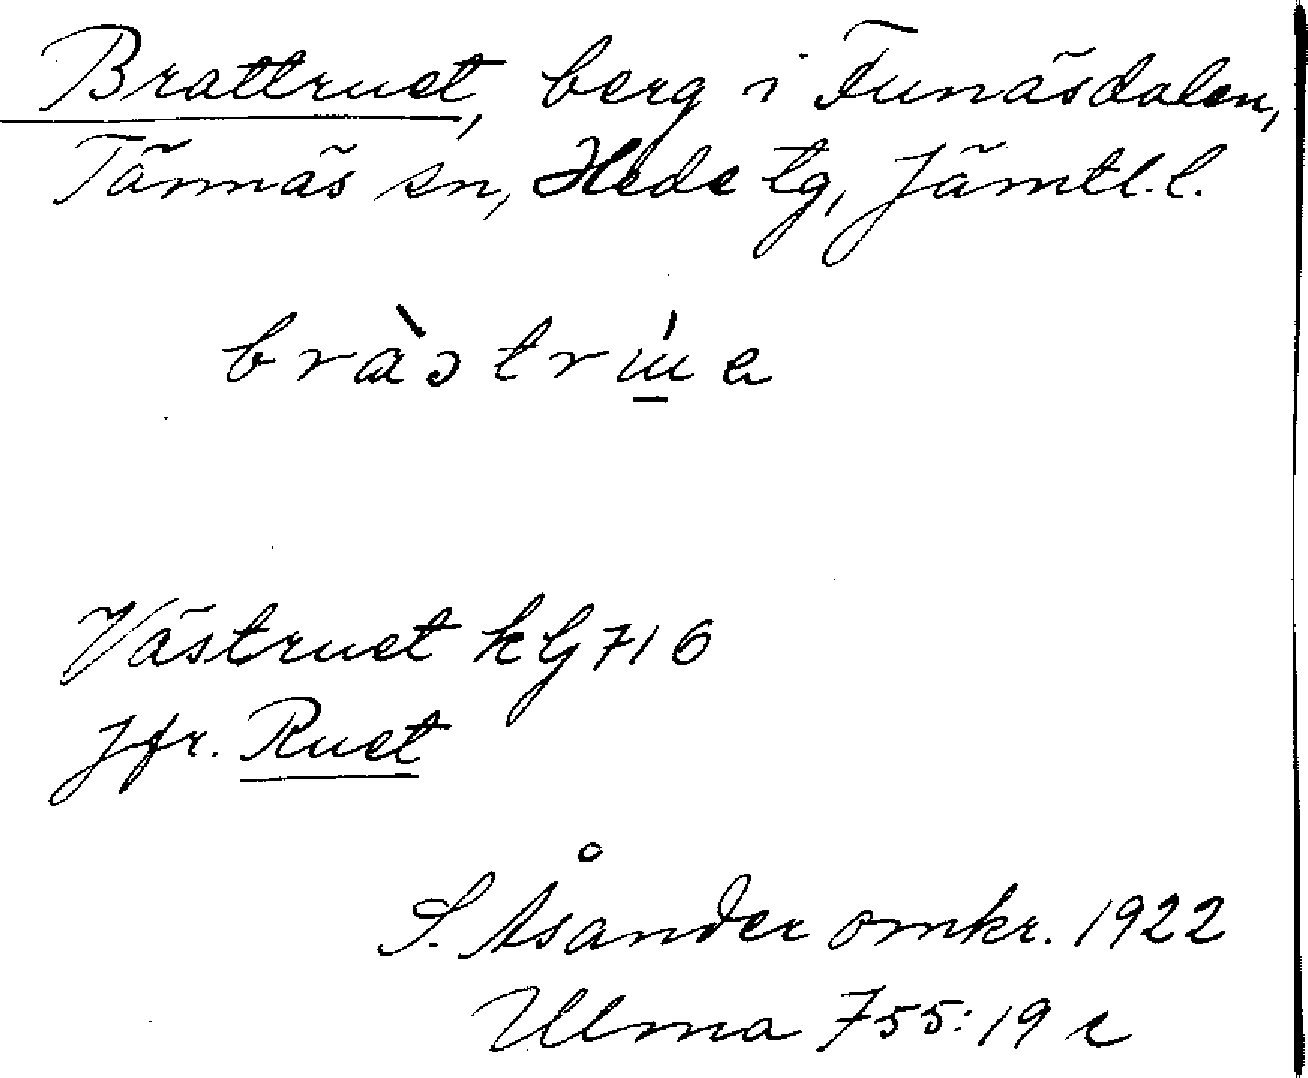 Brattruet, berg i Funäsdalen,
Tännäs sn, Hede tg, Jämtl.l.
Västruet kG 716
Jfr. Ruet
S. Åsander omkr. 1922
Ulma 755:19 c